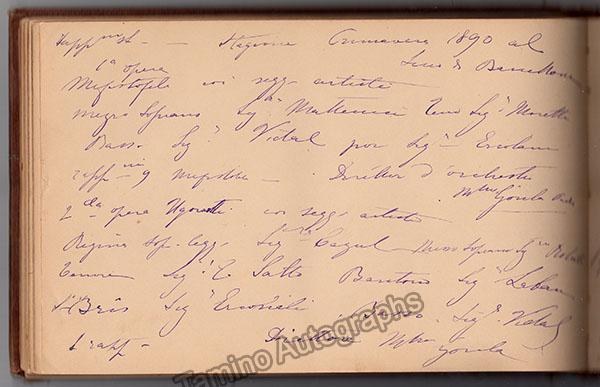 Rapp.ni — Stagione Primavera 1890 al
Liceo di Barcellona
1a opera
Mefistofele coi segg. artisti
mezzo Soprano Sig.a Matteucci Ten. Sig.r Moretti
Basso Sig.r Vidal poi Sig.r Ercolani
rapp.ni 9 Mefistofele — Direttor d'orchestra
M.tro Goula
2.da opera Ugonotti coi segg. artisti
Regina sop. legg. Sig.na Mezzo soprano Sig.na
tenore Sig.r Baritono Sig.r Laban
St Bris Sig.r Ercolani Basso Sig.r Vidal
6 rapp — Direttore M.tro Goula
Tamino Autographs